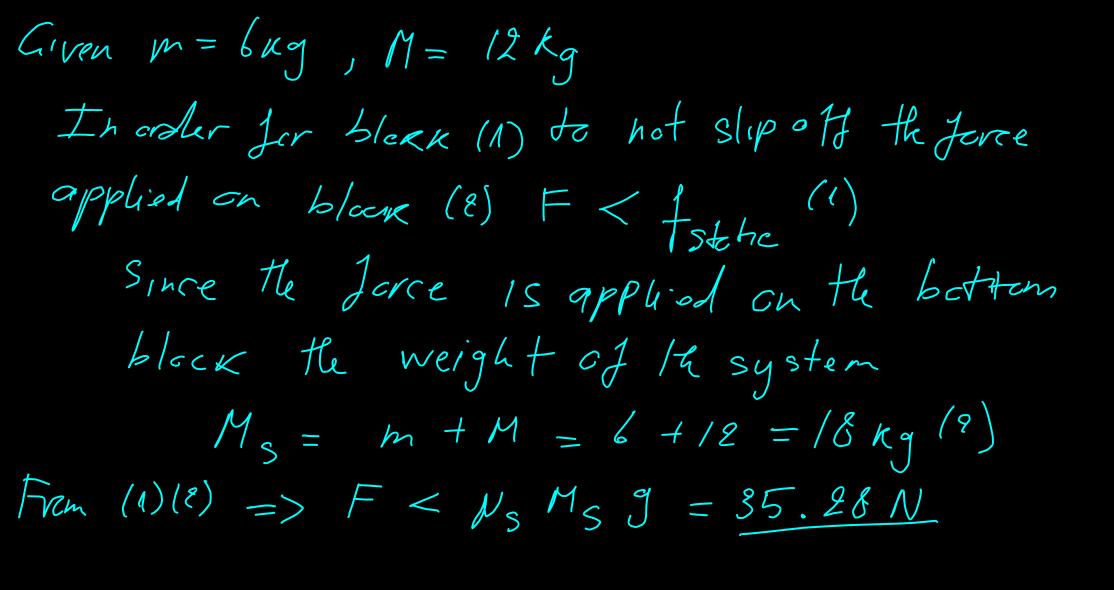 Given m = 6kg , M = 12 kg
In order for block (1) to not slip off the force
applied on block (2) F < f static (1)
Since the force is applied on the bottom
block the weight of th system
Ms = m + M = 6 + 12 = 18 kg (2)
From (1)(2) => F < μs Ms g = 35.28 N